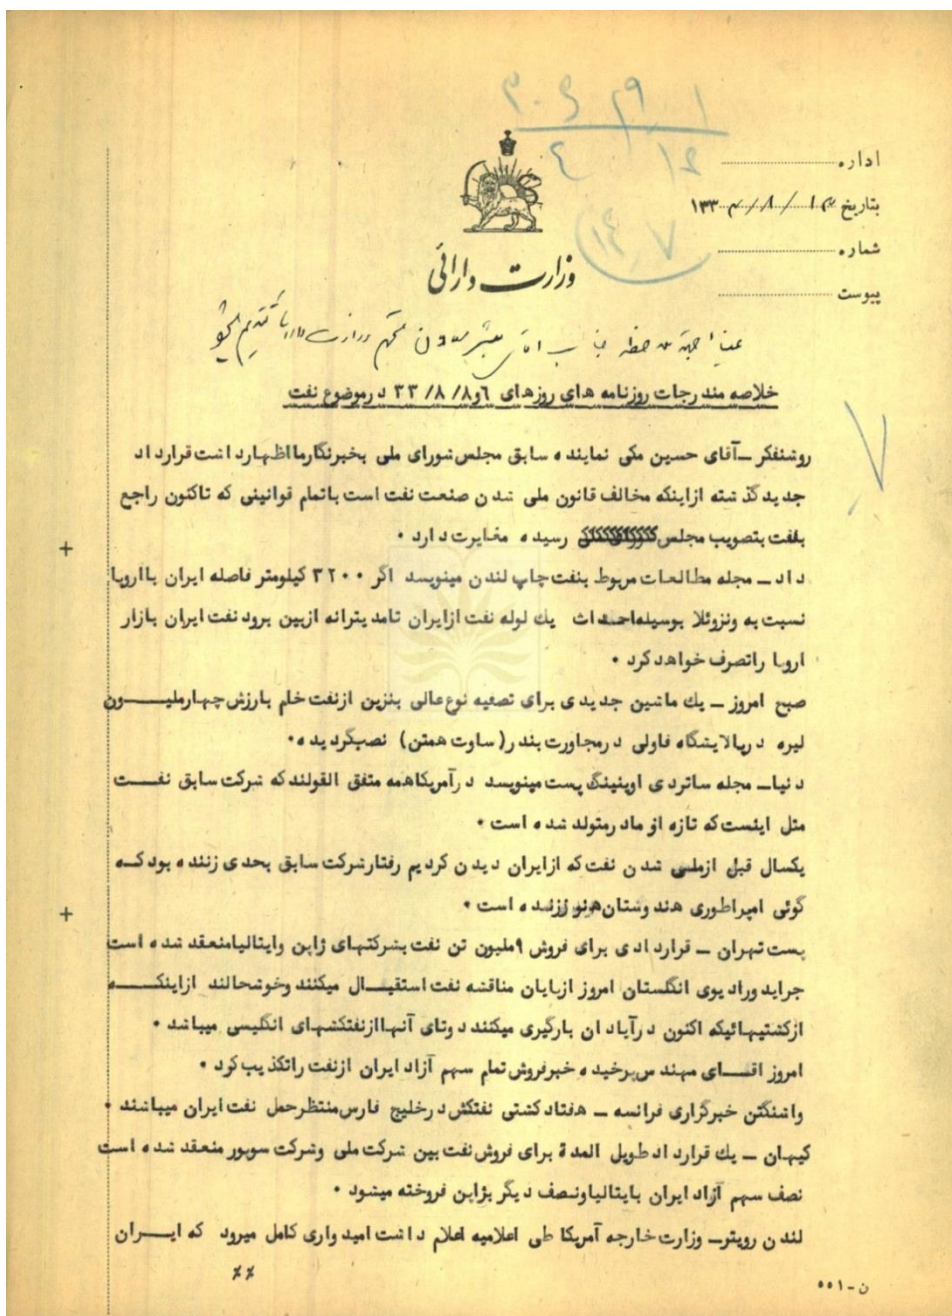 ۳۰۶ ۲۹ ۱
۴ ۱۶
۱۴ ۷
اداره
بتاریخ ۱۳۳۳/۸/۱۳
شماره
پیوست
وزارت دارائی
عیناً جهة ملاحظه جناب آقای مبشر معاون محترم وزارت دارائی تقدیم میشود
خلاصه مندرجات روزنامه های روزهای ٦و۸/ ۸/ ۳۳ درموضوع نفت
روشنفکر ـ آقای حسین مکی نماینده سابق مجلس شورای ملی بخبرنگارما اظهارداشت قرارداد
جدید گذشته ازاینکه مخالف قانون ملی شدن صنعت نفت است باتمام قوانینی که تاکنون راجع
بنفت بتصویب مجلس رسیده مغایرت دارد ٠
داد ـ مجله مطالعات مربوط بنفت چاپ لندن مینویسد اگر ۳۲۰۰ کیلومتر فاصله ایران بااروپا
نسبت به ونزوئلا بوسیله احداث یك لوله نفت ازایران تامدیترانه ازبین برود نفت ایران بازار
اروپا راتصرف خواهد کرد ٠
صبح امروز ـ یك ماشین جدیدی برای تصفیه نوع عالی بنزین ازنفت خام بارزش چهارملیـــون
لیره درپالایشگاه فاولی درمجاورت بندر( ساوت همتن) نصب گردیده٠
دنیا ـ مجله ساتردی اوینینگ پست مینویسد درآمریکاهمه متفق القولند که شرکت سابق نفـــت
مثل اینست که تازه از مادرمتولد شده است ٠
یکسال قبل ازملی شدن نفت که ازایران دیدن کردیم رفتارشرکت سابق بحدی زننده بود کــه
گوئی امپراطوری هندوستان هنوززنده است ٠
پست تهران ـ قراردادی برای فروش ۹ملیون تن نفت بشرکتهای ژاپن وایتالیامنعقد شده است
جراید ورادیوی انگلستان امروز ازپایان مناقشه نفت استقبـــال میکنند وخوشحالند ازاینکــــه
ازکشتیهائیکه اکنون درآبادان بارگیری میکنند دوتای آنها ازنفتکشهای انگلیسی میباشد ٠
امروز اقـــای مهندس پرخیده خبرفروش تمام سهم آزاد ایران ازنفت راتکذیب کرد ٠
واشنگتن خبرگزاری فرانسه ـ هفتاد کشتی نفتکش درخلیج فارس منتظرحمل نفت ایران میباشند ٠
کیهان ـ یك قرارداد طویل المدة برای فروش نفت بین شرکت ملی وشرکت سوپور منعقد شده است
نصف سهم آزاد ایران بایتالیاونصف دیگر بژاپن فروخته میشود ٠
لندن رویترـ وزارت خارجه آمریکا طی اعلامیه اعلام داشت امیدواری کامل میرود که ایـــران
٪ ٪
ن ـ ۵۵۱